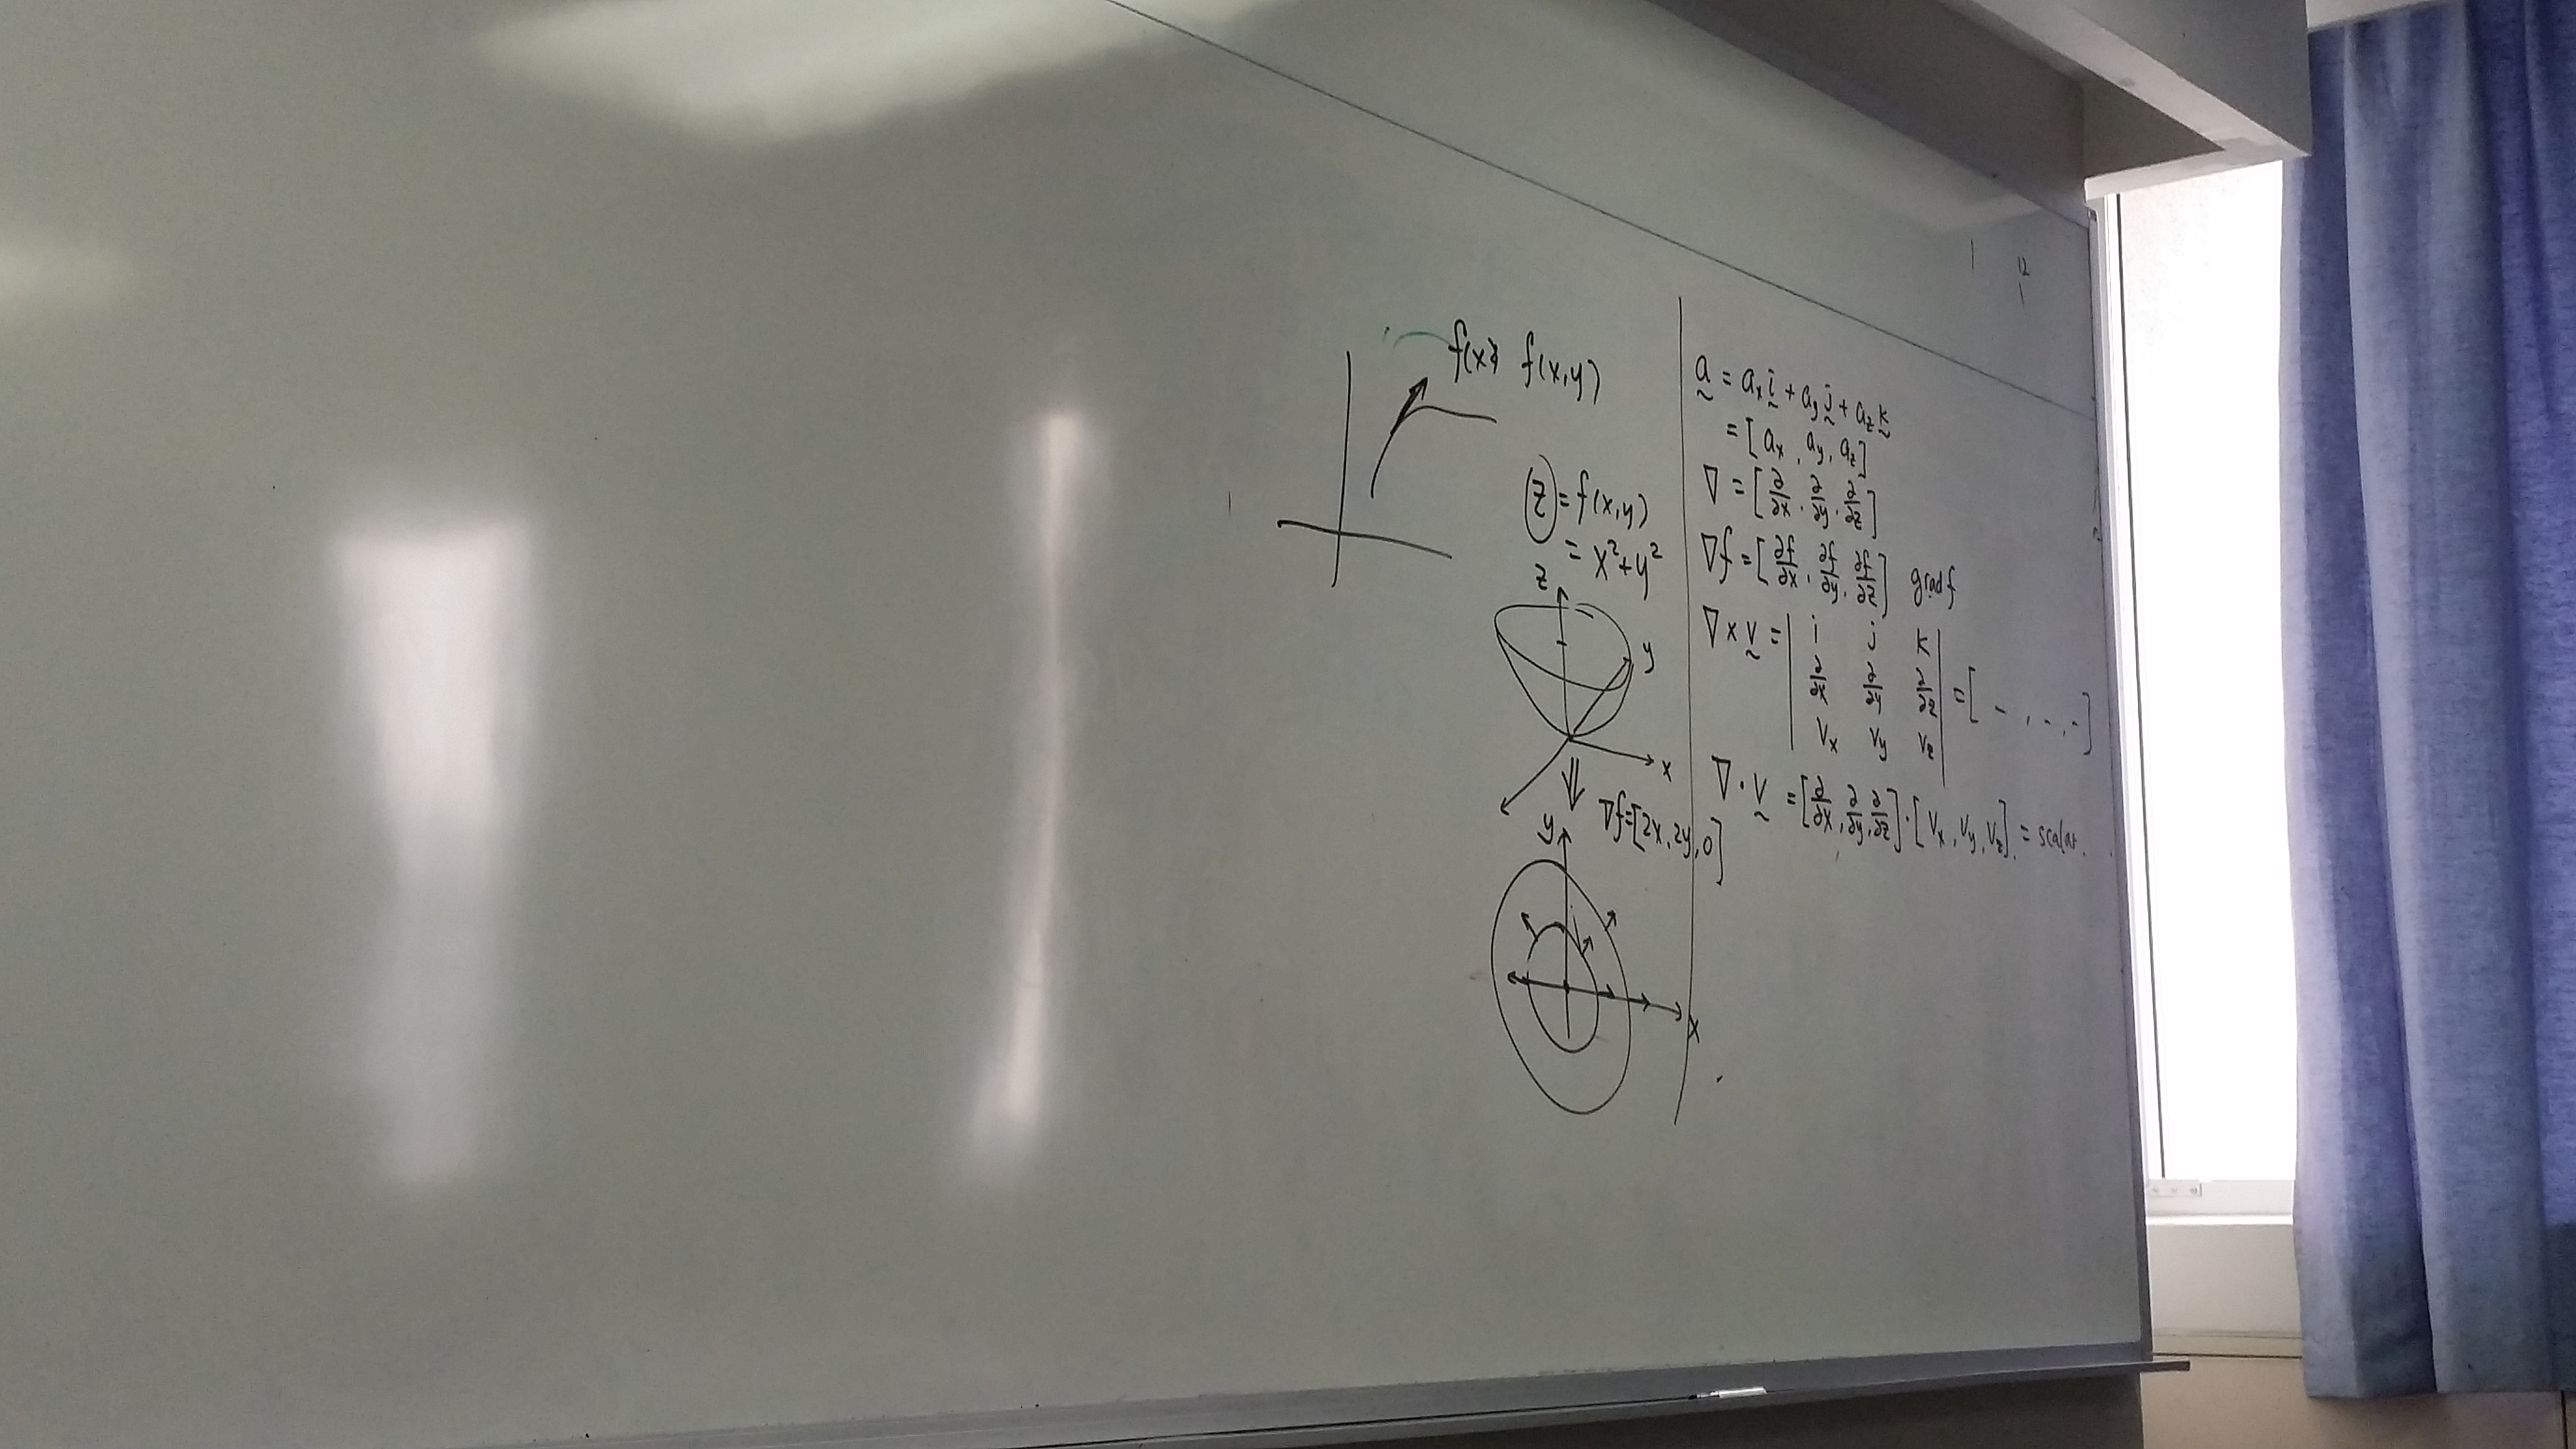 f(x) f(x,y)
z = f(x,y)
= x² + y²
z
y
x
∇f = [2x, 2y, 0]
y
x
a = aₓ i + a_y j + a_z k
= [aₓ, a_y, a_z]
∇ = [∂/∂x, ∂/∂y, ∂/∂z]
∇f = [∂f/∂x, ∂f/∂y, ∂f/∂z] grad f
∇ × v = | i j k
∂/∂x ∂/∂y ∂/∂z | = [ - , - , - ]
Vₓ V_y V_z
∇ · v = [∂/∂x, ∂/∂y, ∂/∂z] · [Vₓ, V_y, V_z] = scalar.